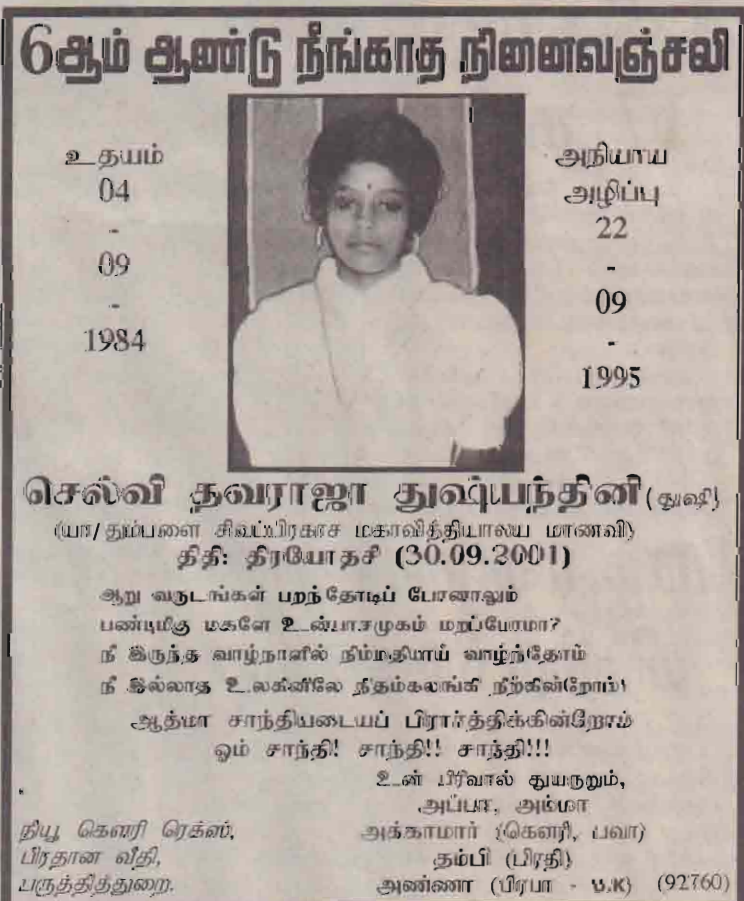 6ஆம் ஆண்டு நீங்காத நினைவஞ்சலி
உதயம்
04
-
09
-
1984
அநியாய
அழிப்பு
22
-
09
-
1995
செல்வி தவராஜா துஷ்யந்தினி (துஷி)
(யா/ தும்பளை சிவப்பிரகாச மகாவித்தியாலய மாணவி)
திதி: திரயோதசி (30.09.2001)
ஆறு வருடங்கள் பறந்தோடிப் போனாலும்
பண்புமிகு மகளே உன்பாசமுகம் மறப்போமா?
நீ இருந்த வாழ்நாளில் நிம்மதியாய் வாழ்ந்தோம்
நீ இல்லாத உலகினிலே நிதம்கலங்கி நிற்கின்றோம்!
ஆத்மா சாந்தியடையப் பிரார்த்திக்கின்றோம்
ஓம் சாந்தி! சாந்தி!! சாந்தி!!!
உன் பிரிவால் துயருறும்,
அப்பா, அம்மா
அக்காமார் (கௌரி, பவா)
தம்பி (பிரதி)
அண்ணா (பிரபா - U.K) (92760)
நியூ கௌரி ரெக்ஸ்,
பிரதான வீதி,
பருத்தித்துறை.